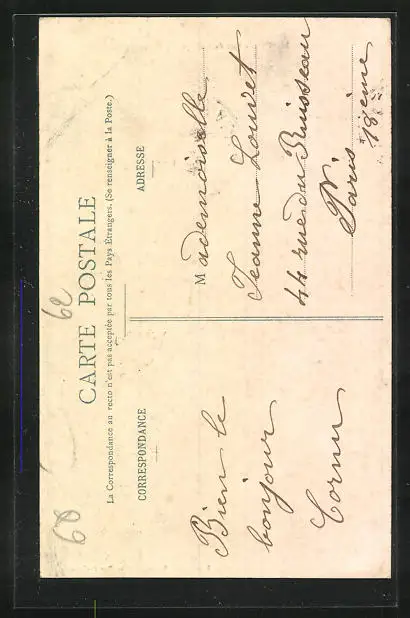 60
62
CARTE POSTALE
La Correspondance au recto n'est pas acceptée par tous les Pays Étrangers. (Se renseigner à la Poste.)
CORRESPONDANCE
Bien le
bonjour
Cornu
ADRESSE
Mademoiselle
Jeanne Louvet
44 rue du Ruisseau
Paris
18ième